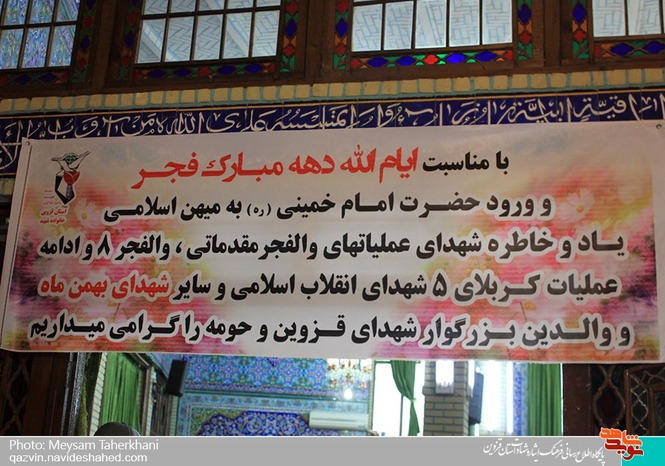 با مناسبت ایام الله دهه مبارک فجر
و ورود حضرت امام خمینی (ره) به میهن اسلامی
یاد و خاطره شهدای عملیاتهای والفجر مقدماتی ، والفجر ۸ و ادامه
عملیات کربلای ۵ شهدای انقلاب اسلامی و سایر شهدای بهمن ماه
و والدین بزرگوار شهدای قزوین و حومه را گرامی میداریم
Photo: Meysam Taherkhani
qazvin.navideshahed.com
پایگاه اطلاع رسانی فرهنگ ایثار و شهادت استان قزوین
نوید شاهد